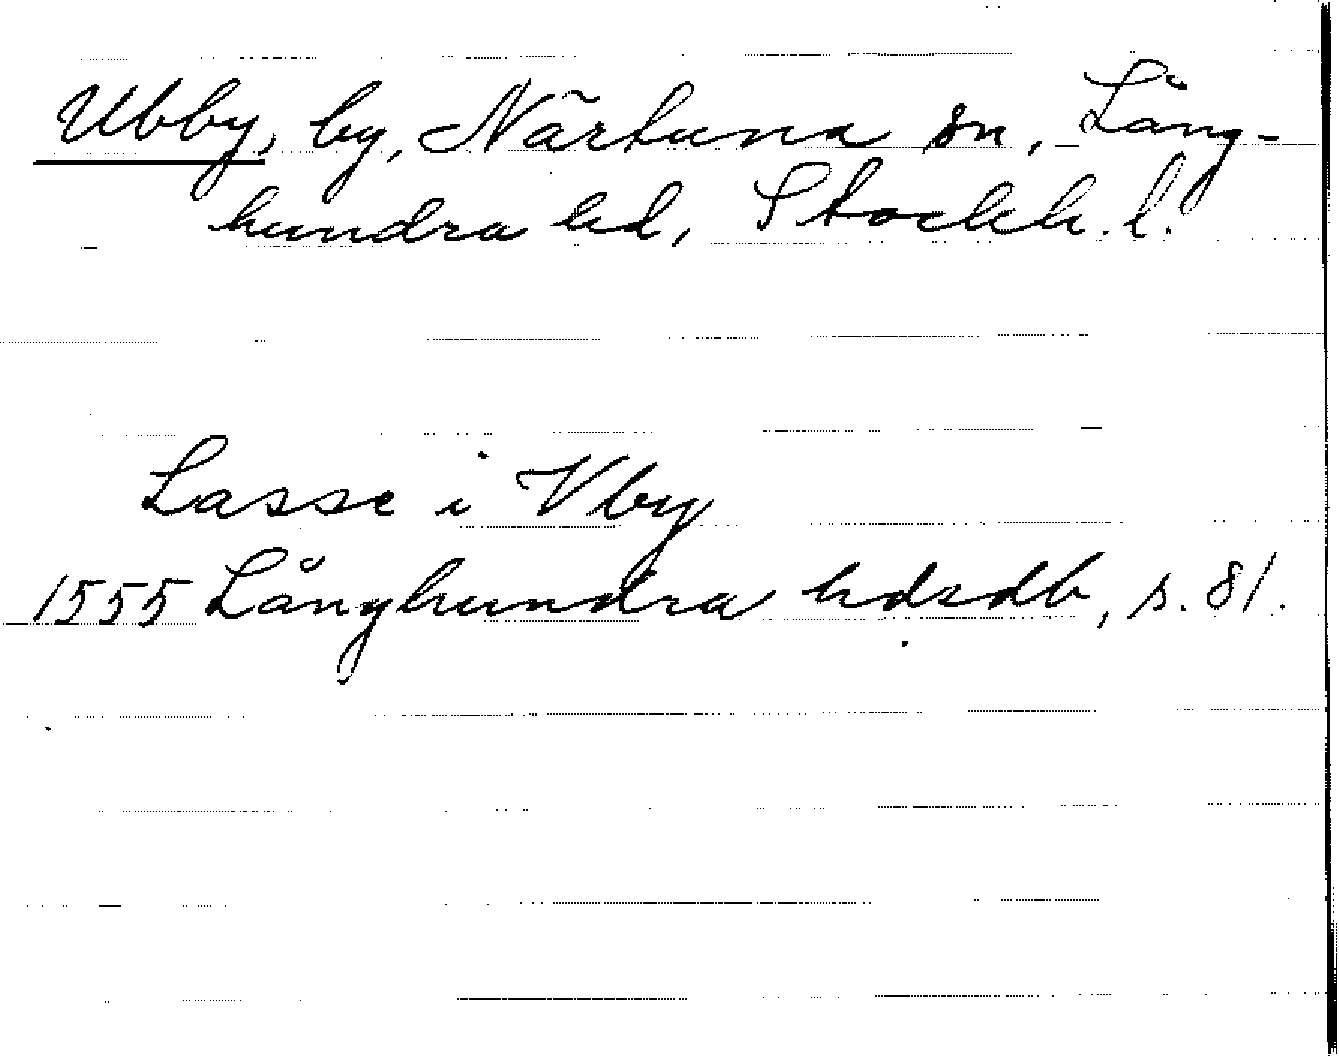 Ubby, by, Närtuna sn, Lång-
hundra hd, Stockh. l.
Lasse i Vby
1555 Långhundra hdsdb, s. 81.